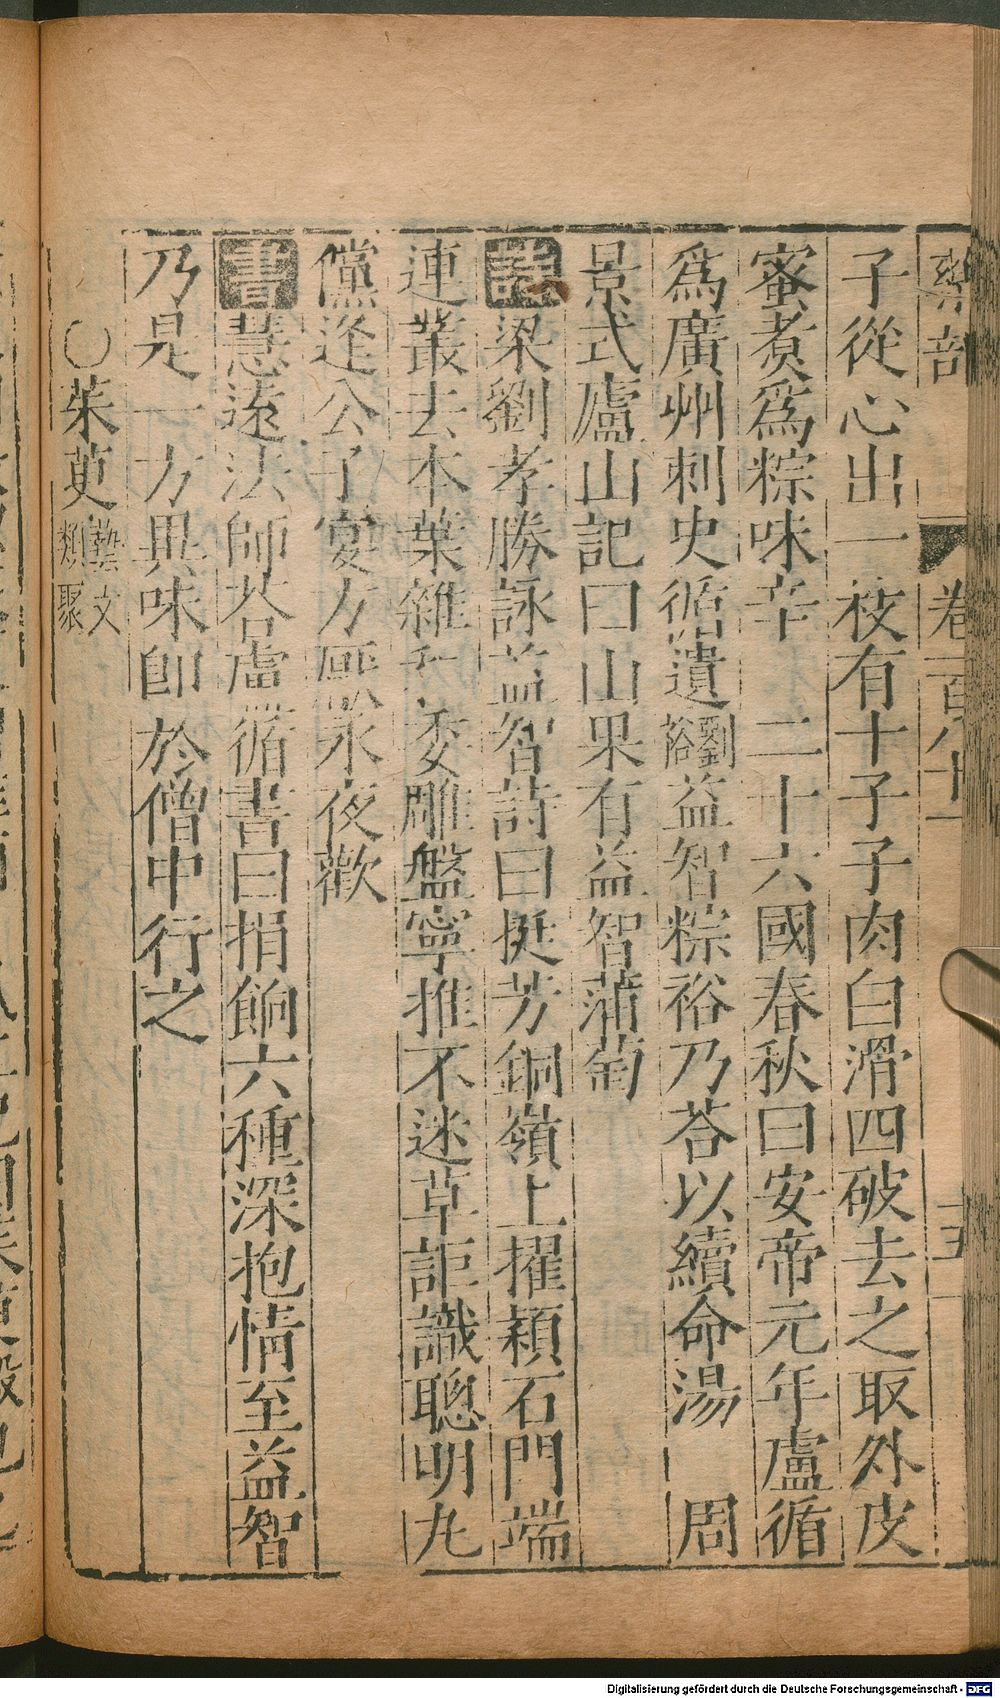 菓部 卷一百八十一 十五
子從心出一枝有十子子肉白滑四破去之取外皮
蜜煮爲粽味辛 二十六國春秋曰安帝元年盧循
爲廣州刺史循遺劉裕益智粽裕乃荅以續命湯 周
景式廬山記曰山果有益智蒲萄
詩梁劉孝勝詠益智詩曰挺芳銅嶺上擢穎石門端
連叢去本葉雜和委雕盤寧推不迷草詎識聰明丸
儻逢公子宴方厭永夜歡
書慧遠法師荅盧循書曰捐餉六種深抱情至益智
乃是一方異味卽於僧中行之
〇茱萸藝文類聚
Digitalisierung gefördert durch die Deutsche Forschungsgemeinschaft - DFG